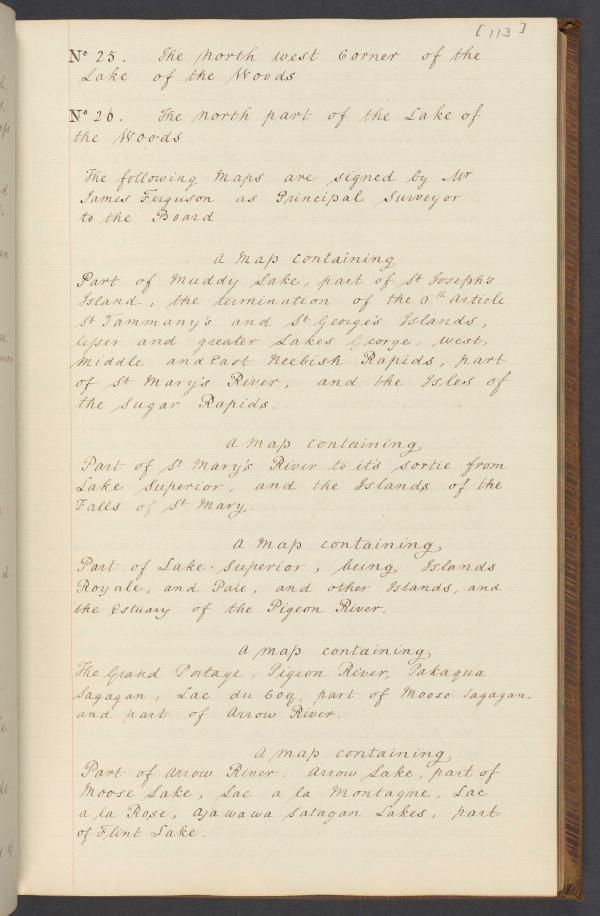 [113]
No 25. The North West Corner of the
Lake of the Woods
No 26. The north part of the Lake of
the Woods
The following Maps are signed by Mr
James Ferguson as Principal Surveyor
to the Board
A Map containing
Part of Muddy Lake, part of St Joseph's
Island, the termination of the 6th Article
St Tammany's and St George's Islands,
lesser and greater Lakes George, West,
Middle and East Neebish Rapids, part
of St Mary's River, and the Isles of
the Sugar Rapids.
A Map containing
Part of St Mary's River to it's sortie from
Lake Superior, and the Islands of the
Falls of St Mary.
A Map containing
Part of Lake Superior, being Islands
Royale, and Pate, and other Islands, and
the Estuary of the Pigeon River.
A Map containing
The Grand Portage, Pigeon River,
Sagagan, Lac du Coq, part of Moose Sagagan,
and part of Arrow River.
A Map containing
Part of Arrow River, Arrow Lake, part of
Moose Lake, Lac a la Montagne, Lac
a la Rose, Ajawawa Satagan Lakes, part
of Flint Lake.